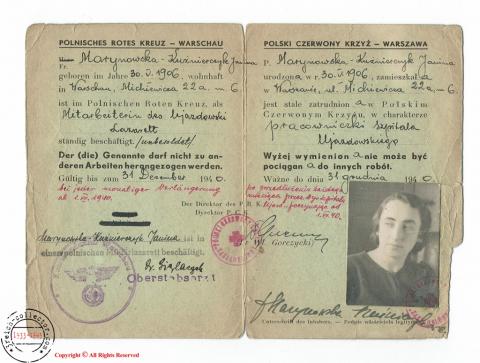 POLNISCHES ROTES KREUZ – WARSCHAU
Marynowska-Kuźnierczyk Janina
Fr.
geboren im Jahre 30.V.1906, wohnhaft
in Warschau, Mickiewicza 22a m-6
ist im Polnischen Roten Kreuz, als
Mitarbeiterin des Ujazdowski
Lazarett
ständig beschäftigt. /unbesoldet/
Der (die) Genannte darf nicht zu an-
deren Arbeiten herangezogen werden.
Gültig bis zum 31 Dezember 1940
bei jeder monatiger Verlängerung
ab 1.VII.1940.
Der Direktor des P. R. K.
Dyrektor P. C. K.
Marynowska-Kuźnierczyk Janina ist in
einem polnischen Militärlazarett beschäftigt.
Oberstabsarzt
POLSKI CZERWONY KRZYŻ – WARSZAWA
P. Marynowska-Kuźnierczyk Janina
urodzona w r. 30.V.1906, zamieszkała
w Warszawie, ul. Mickiewicza 22a m-6
jest stale zatrudniona w Polskim
Czerwonym Krzyżu, w charakterze
pracowniczki szpitala
Ujazdowskiego
Wyżej wymieniona nie może być
pociągana do innych robót.
Ważne do dnia 31 grudnia 1940
Gorczycki
Unterschrift des Inhabers. – Podpis właściciela legitymacji
reich-collector.com
1933-1945
Copyright © All Rights Reserved